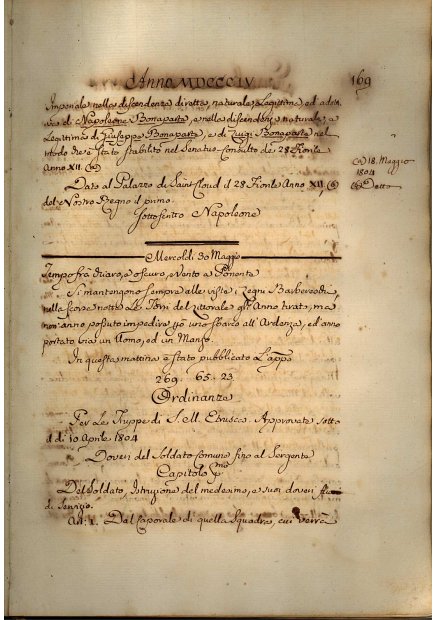 Anno MDCCCIV
169
Imperiale nella discendenza diretta, naturale, e Legittima, ed adotti
va di Napoleone Bonaparte, e nella discendenza naturale, e
Legittima di Giuseppe Bonaparte, e di Luigi Bonaparte nel
modo che è stato stabilito nel Senatus Consulto de 28 Fiorile
Anno XII. (a)
(a) 18. Maggio
1804
Dato al Palazzo di Saint Cloud il 28 Fiorile Anno XII. (b)
(b) Detto
del Nostro Regno il primo.
Sottoscritto Napoleone
Mercoldì 30 Maggio
Tempo frà chiaro, e oscuro, e Vento a Ponente
Si mantengono sempre alle viste i Legni Barbereschi,
nella scorsa notte Le Torri del Littorale gli Anno tirato, ma
non anno possuto impedire uno sbarco all'Ardenza, ed anno
portato via un Uomo, ed un Manzo.
In questa mattina è stato pubblicato L'app.
269. 65. 23.
Ordinanza
Per Le Truppe di S. M. Etrusca. Approvate sotto
dì 10 Aprile 1804
Doveri del Soldato comune fino al Sergente
Capitolo Pmo
Del Soldato, Istruzione del medesimo, e suoi doveri
di Servizio.
Art: 1. Dal Caporale di quella Squadra, cui verrà